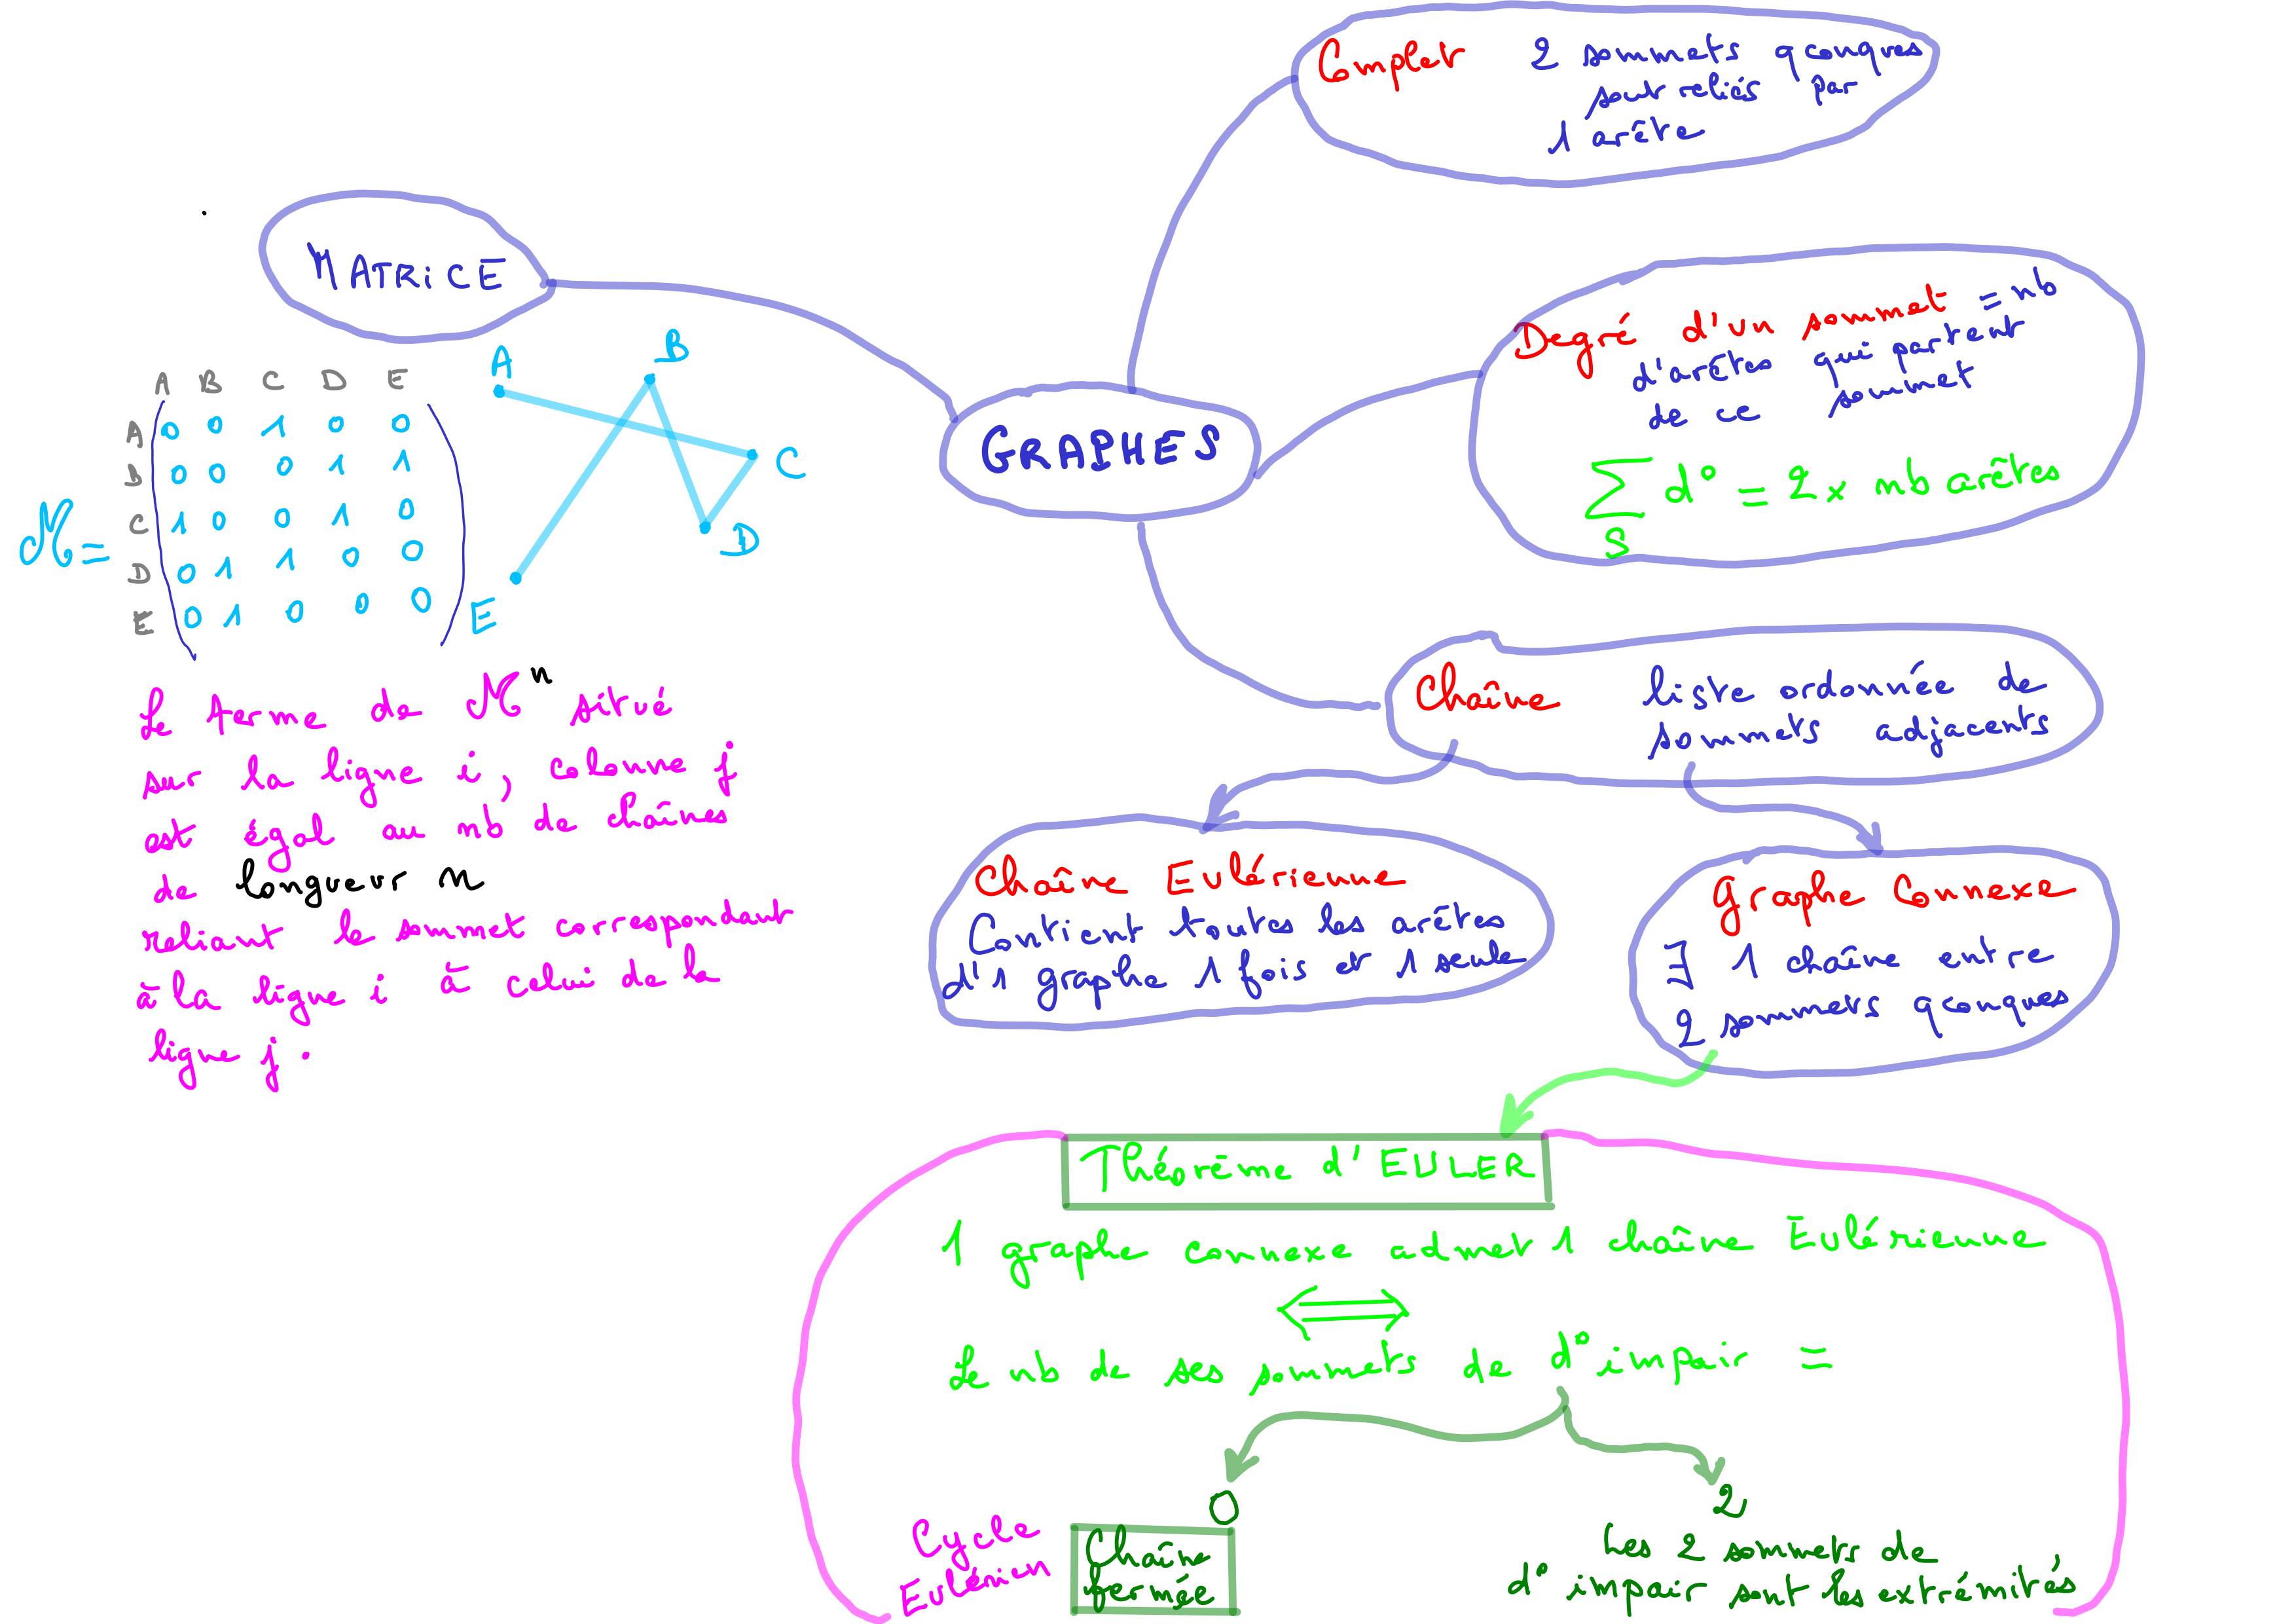 Complet 2 sommets qconques
sont reliés par
1 arête
MATRiCE
Degré d'un sommet = nb
d'arêtes qui partent
de ce sommet
∑ d° = 2 x nb arêtes
S
GRAPHES
A B C D E
A 0 0 1 0 0
B 0 0 0 1 1
C 1 0 0 1 0
M = D 0 1 1 0 0
E 0 1 0 0 0
A
B
C
D
E
Le terme de M^n situé
sur la ligne i, colonne j
est égal au nb de chaînes
de longueur n
reliant le sommet correspondant
à la ligne i à celui de la
ligne j.
Chaîne liste ordonnée de
sommets adjacents
Chaîne Eulérienne
Contient toutes les arêtes
d'1 graphe 1 fois et 1 seule
Graphe Connexe
∃ 1 chaîne entre
2 sommets qconques
Théorème d'EULER
1 graphe connexe admet 1 chaîne Eulérienne
⟺
Le nb de ses sommets de d° impair =
0
2
Cycle
Eulérien
Chaîne
fermée
Les 2 sommets de
d° impair sont les extrémités